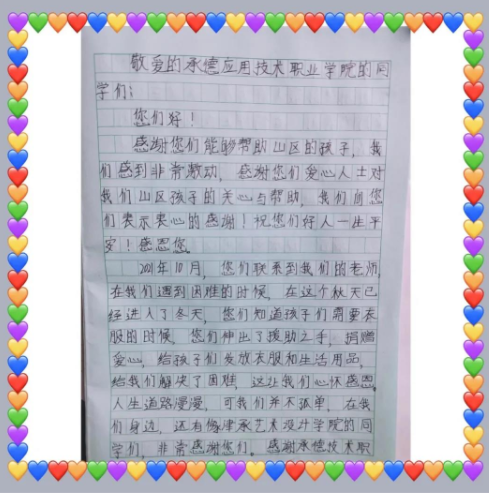 敬爱的承德应用技术职业学院的同
学们:
您们好!
感谢您们能够帮助山区的孩子,我
们感到非常激动,感谢您们爱心人士对
我们山区孩子的关心与帮助,我们向您
们表示衷心的感谢!祝您们好人一生平
安!感恩您
2021年10月,您们联系到我们的老师,
在我们遇到困难的时候,在这个秋天已
经进入了冬天,您们知道孩子们需要衣
服的时候,您们伸出了援助之手,捐赠
爱心,给孩子们发放衣服和生活用品,
给我们解决了困难,这让我们心怀感恩,
人生道路漫漫,可我们并不孤单,在我
们身边,还有像津承艺术设计学院的同
学们,非常感谢您们,感谢承德技术职